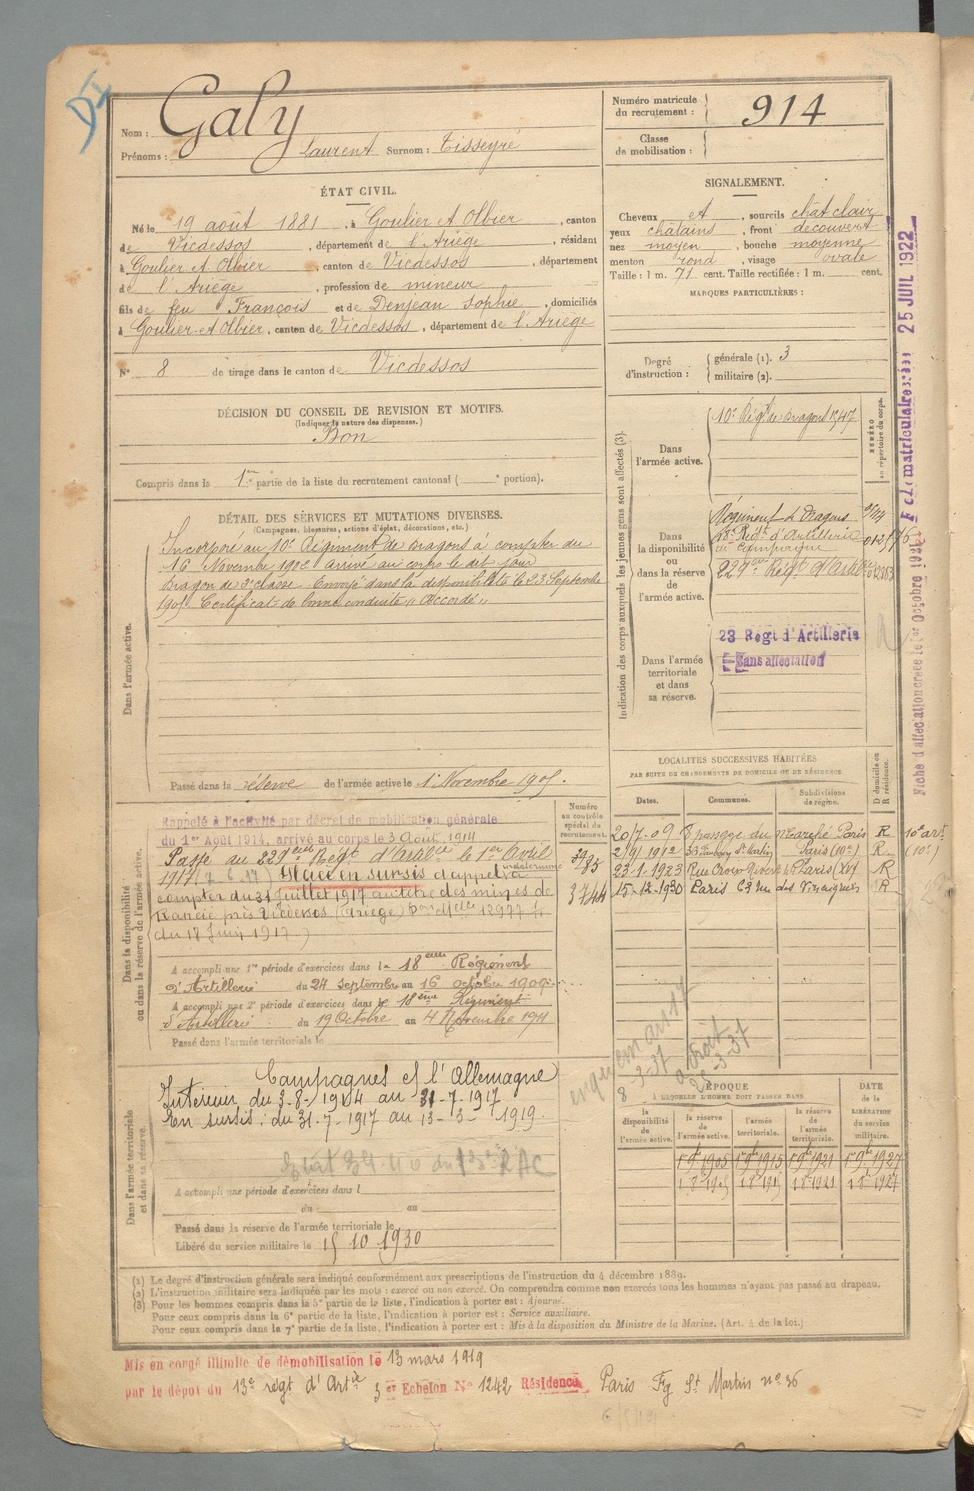 Nom : Galy
Prénoms : Laurent Surnom : Tisseyré
Numéro matricule du recrutement : 914
Classe de mobilisation :
ÉTAT CIVIL.
Né le 19 août 1881, à Goulier et Olbier, canton
de Vicdessos, département de l'Ariège, résidant
à Goulier et Olbier, canton de Vicdessos, département
de l'Ariège, profession de mineur
fils de feu François et de Denjean Sophie, domiciliés
à Goulier et Olbier, canton de Vicdessos, département de l'Ariège
N° 8 de tirage dans le canton de Vicdessos
SIGNALEMENT.
Cheveux et, sourcils chat clair
yeux chatains, front découvert
nez moyen, bouche moyenne
menton rond, visage ovale
Taille : 1 m. 71 cent. Taille rectifiée : 1 m. cent.
MARQUES PARTICULIÈRES :
Degré d'instruction : générale (1). 3
militaire (2).
DÉCISION DU CONSEIL DE REVISION ET MOTIFS.
(Indiquer la nature des dispenses.)
Bon
Compris dans la 1re partie de la liste du recrutement cantonal ( e portion).
DÉTAIL DES SERVICES ET MUTATIONS DIVERSES.
(Campagnes, blessures, actions d'éclat, décorations, etc.)
Dans l'armée active.
Incorporé au 10e Régiment de Dragons à compter du
16 Novembre 1902 arrivé au corps le dit jour
Dragon de 2e classe. Envoyé dans la disponibilité le 23 Septembre
1905 Certificat de bonne conduite "Accordé"
Passé dans la réserve de l'armée active le 1er Novembre 1905.
Indication des corps auxquels les jeunes gens sont affectés (3).
NUMÉRO au répertoire du corps.
Dans l'armée active.
10e Régt de Dragons 1547
Dans la disponibilité ou dans la réserve de l'armée active.
Régiment de Dragons
18e Régt d'Artillerie
de campagne
Dans l'armée territoriale et dans sa réserve.
23 Régt d'Artillerie
Sans affectation
Fiche d'affectation créée le 1er Octobre 192
25 JUIL 1922
Dans la disponibilité ou dans la réserve de l'armée active.
Rappelé à l'activité par décret de mobilisation générale
du 1er Août 1914, arrivé au corps le 3 Août 1914
Passé au 229ème Régt d'Artie le 1er Avril
1917 Placé en sursis d'appel à
compter du 31 Juillet 1917 au titre des mines de
Rancié près Vicdessos (Ariège) 12977
du 17 Juin 1917.)
A accompli une 1re période d'exercices dans le 18ème Régiment
d'Artillerie du 24 septembre au 16 octobre 1909
A accompli une 2e période d'exercices dans le 18ème Régiment
d'Artillerie du 19 Octobre au 4 Novembre 1911
Passé dans l'armée territoriale le
Numéro au contrôle spécial du recrutement.
3744
LOCALITÉS SUCCESSIVES HABITÉES
PAR SUITE DE CHANGEMENTS DE DOMICILE OU DE RÉSIDENCE.
Dates. Communes. Subdivisions de région. D domicile ou R résidence.
20/7-09 8 passage du Marché Paris R
2/9/1912 33 Faubourg St Martin Paris (10e) R
23-1-1923 Rue Croix Nivert Paris (XV) R
15-12-1930 Paris 63 rue des Vinaigriers R
Dans l'armée territoriale et dans sa réserve.
Campagnes c/ l'Allemagne
Intérieur du 3-8-1914 au 31-7-1917
En sursis : du 31-7-1917 au 13-3-1919.
A accompli une période d'exercices dans l
du au
Passé dans la réserve de l'armée territoriale le
Libéré du service militaire le 15 10 1930
ÉPOQUE
A LAQUELLE L'HOMME DOIT PASSER DANS
la disponibilité de l'armée active. la réserve de l'armée active. l'armée territoriale. la réserve de l'armée territoriale. DATE de la LIBÉRATION du service militaire.
1 9bre 1905 1 9bre 1915 1 9bre 1921 1 9bre 1927
(1) Le degré d'instruction générale sera indiqué conformément aux prescriptions de l'instruction du 4 décembre 1889.
(2) L'instruction militaire sera indiquée par les mots : exercé ou non exercé. On comprendra comme non exercés tous les hommes n'ayant pas passé au drapeau.
(3) Pour les hommes compris dans la 5e partie de la liste, l'indication à porter est : Ajourné.
Pour ceux compris dans la 6e partie de la liste, l'indication à porter est : Service auxiliaire.
Pour ceux compris dans la 7e partie de la liste, l'indication à porter est : Mis à la disposition du Ministre de la Marine. (Art. 4 de la loi.)
Mis en congé illimité de démobilisation le 13 mars 1919
par le dépôt du 13e régt d'Artie 3 er Echelon N° 1242 Résidence Paris Fg St Martin n° 36